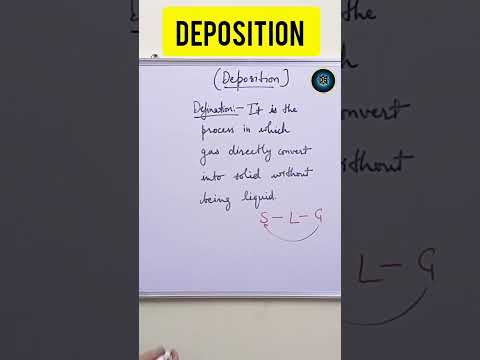 DEPOSITION
(Deposition)
Defination:- It is the
process in which
gas directly convert
into solid without
being liquid.
S - L - G